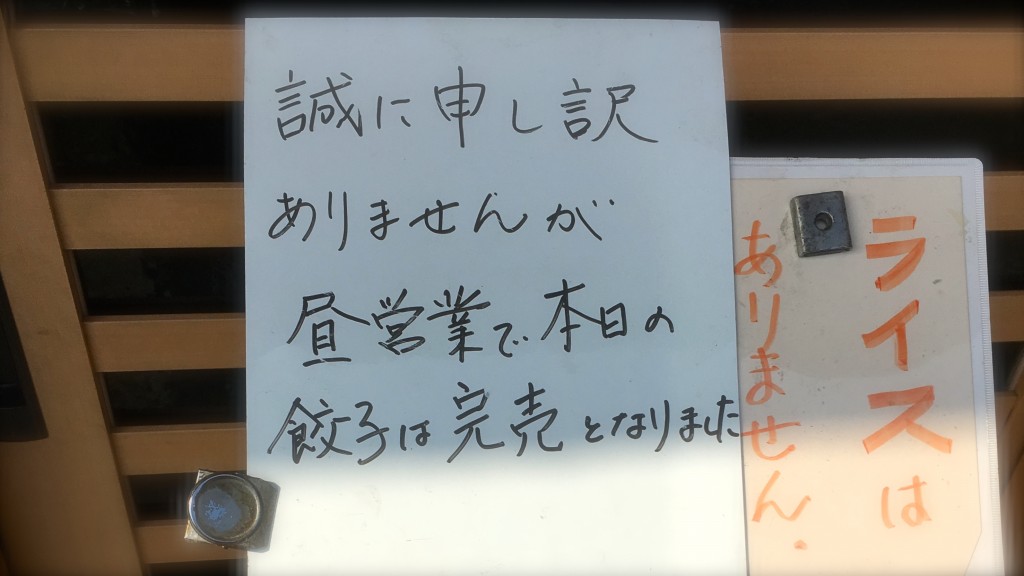 誠に申し訳
ありませんが
昼営業で本日の
餃子は完売となりました
ライスは
ありません.